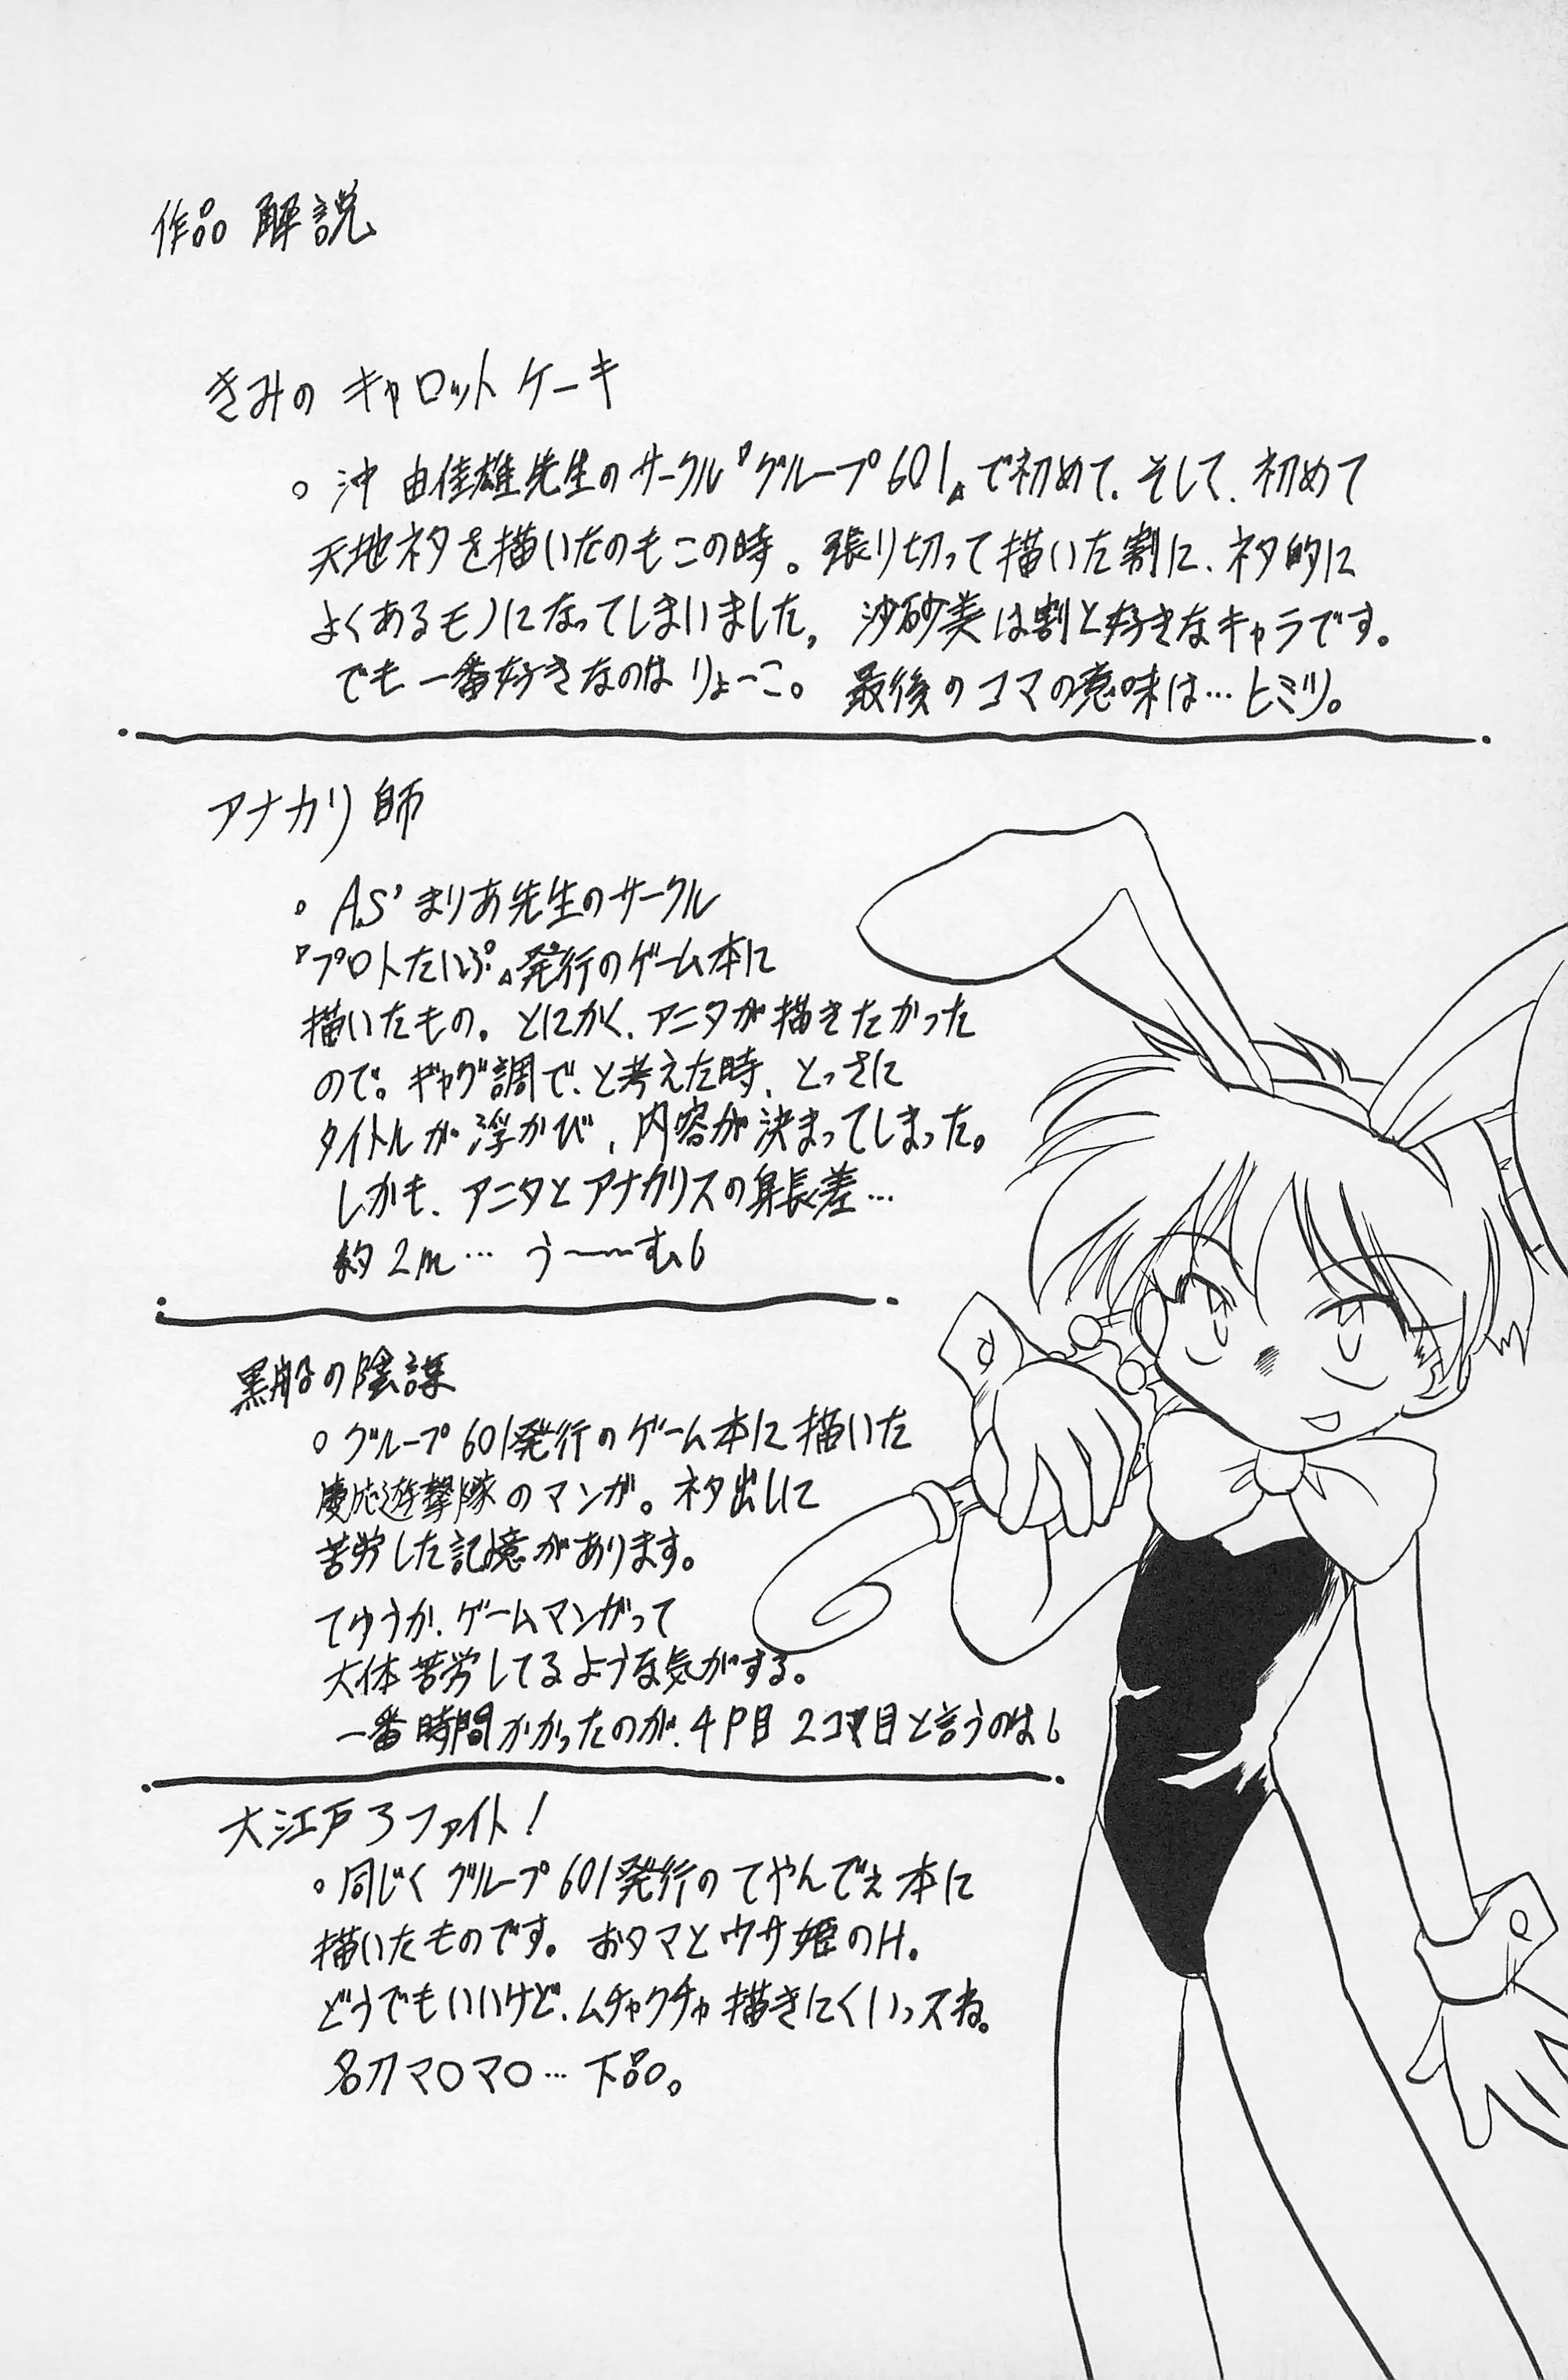 作品解説
きみのキャロットケーキ
。沖由佳雄先生のサークル『グループ601』で初めて、そして、初めて
天地ネタを描いたのもこの時。張り切って描いた割に、ネタ的に
よくあるモノになってしまいました。沙砂美は割と好きなキャラです。
でも一番好きなのはりょーこ。最後のコマの意味は…ヒミツ。
アナカリ師
。AS'まりあ先生のサークル
『プロトたいぷ』発行のゲーム本に
描いたもの。とにかく、アニタが描きたかった
ので。ギャグ調で、と考えた時、とっさに
タイトルが浮かび、内容が決まってしまった。
しかも、アニタとアナカリスの身長差…
約2m…う〜〜む
黒船の陰謀
。グループ601発行のゲーム本に描いた
慶応遊撃隊のマンガ。ネタ出しに
苦労した記憶があります。
てゆうか、ゲームマンガって
大体苦労してるような気がする。
一番時間かかったのが、4P目2コマ目と言うのは
大江戸ろファイト!
。同じくグループ601発行のてやんでぇ本に
描いたものです。おタマとウサ姫のH。
どうでもいいけど、ムチャクチャ描きにくいっスね。
名刀マ○マ○…下品。